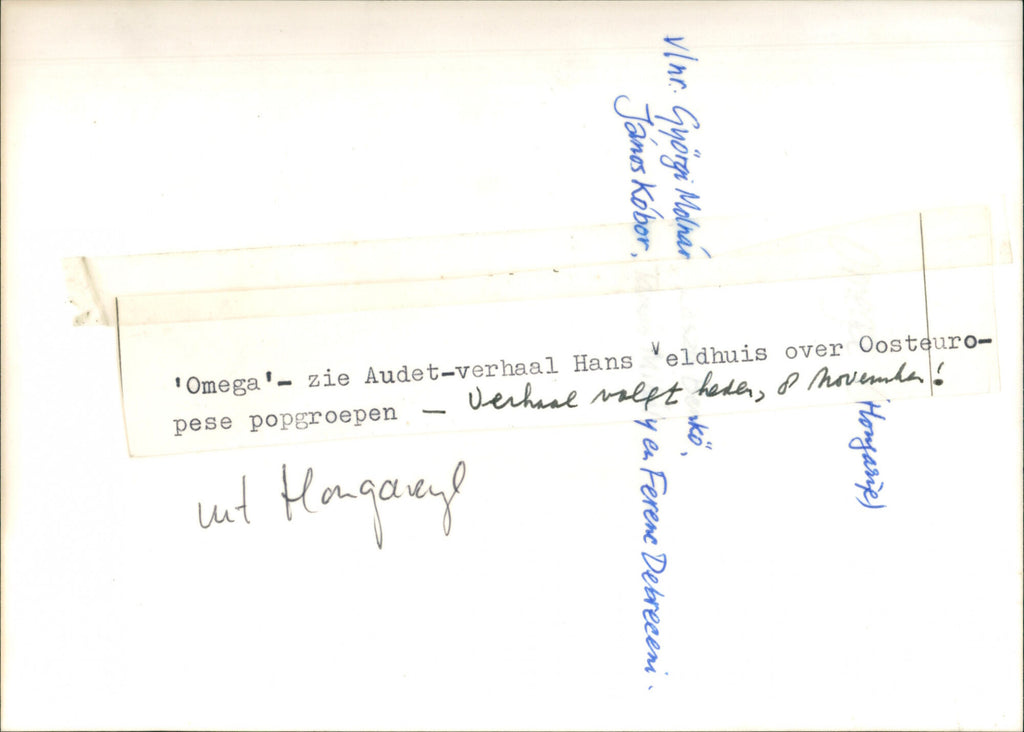 'Omega'- zie Audet-verhaal Hans Veldhuis over Oosteuro-
pese popgroepen — Verhaal volgt heden, 8 november!
uit Hongarije
Vlnr. Györgi Molnár
kö,
János Kóbor,
y en Ferenc Debreceni.
Hongarije)